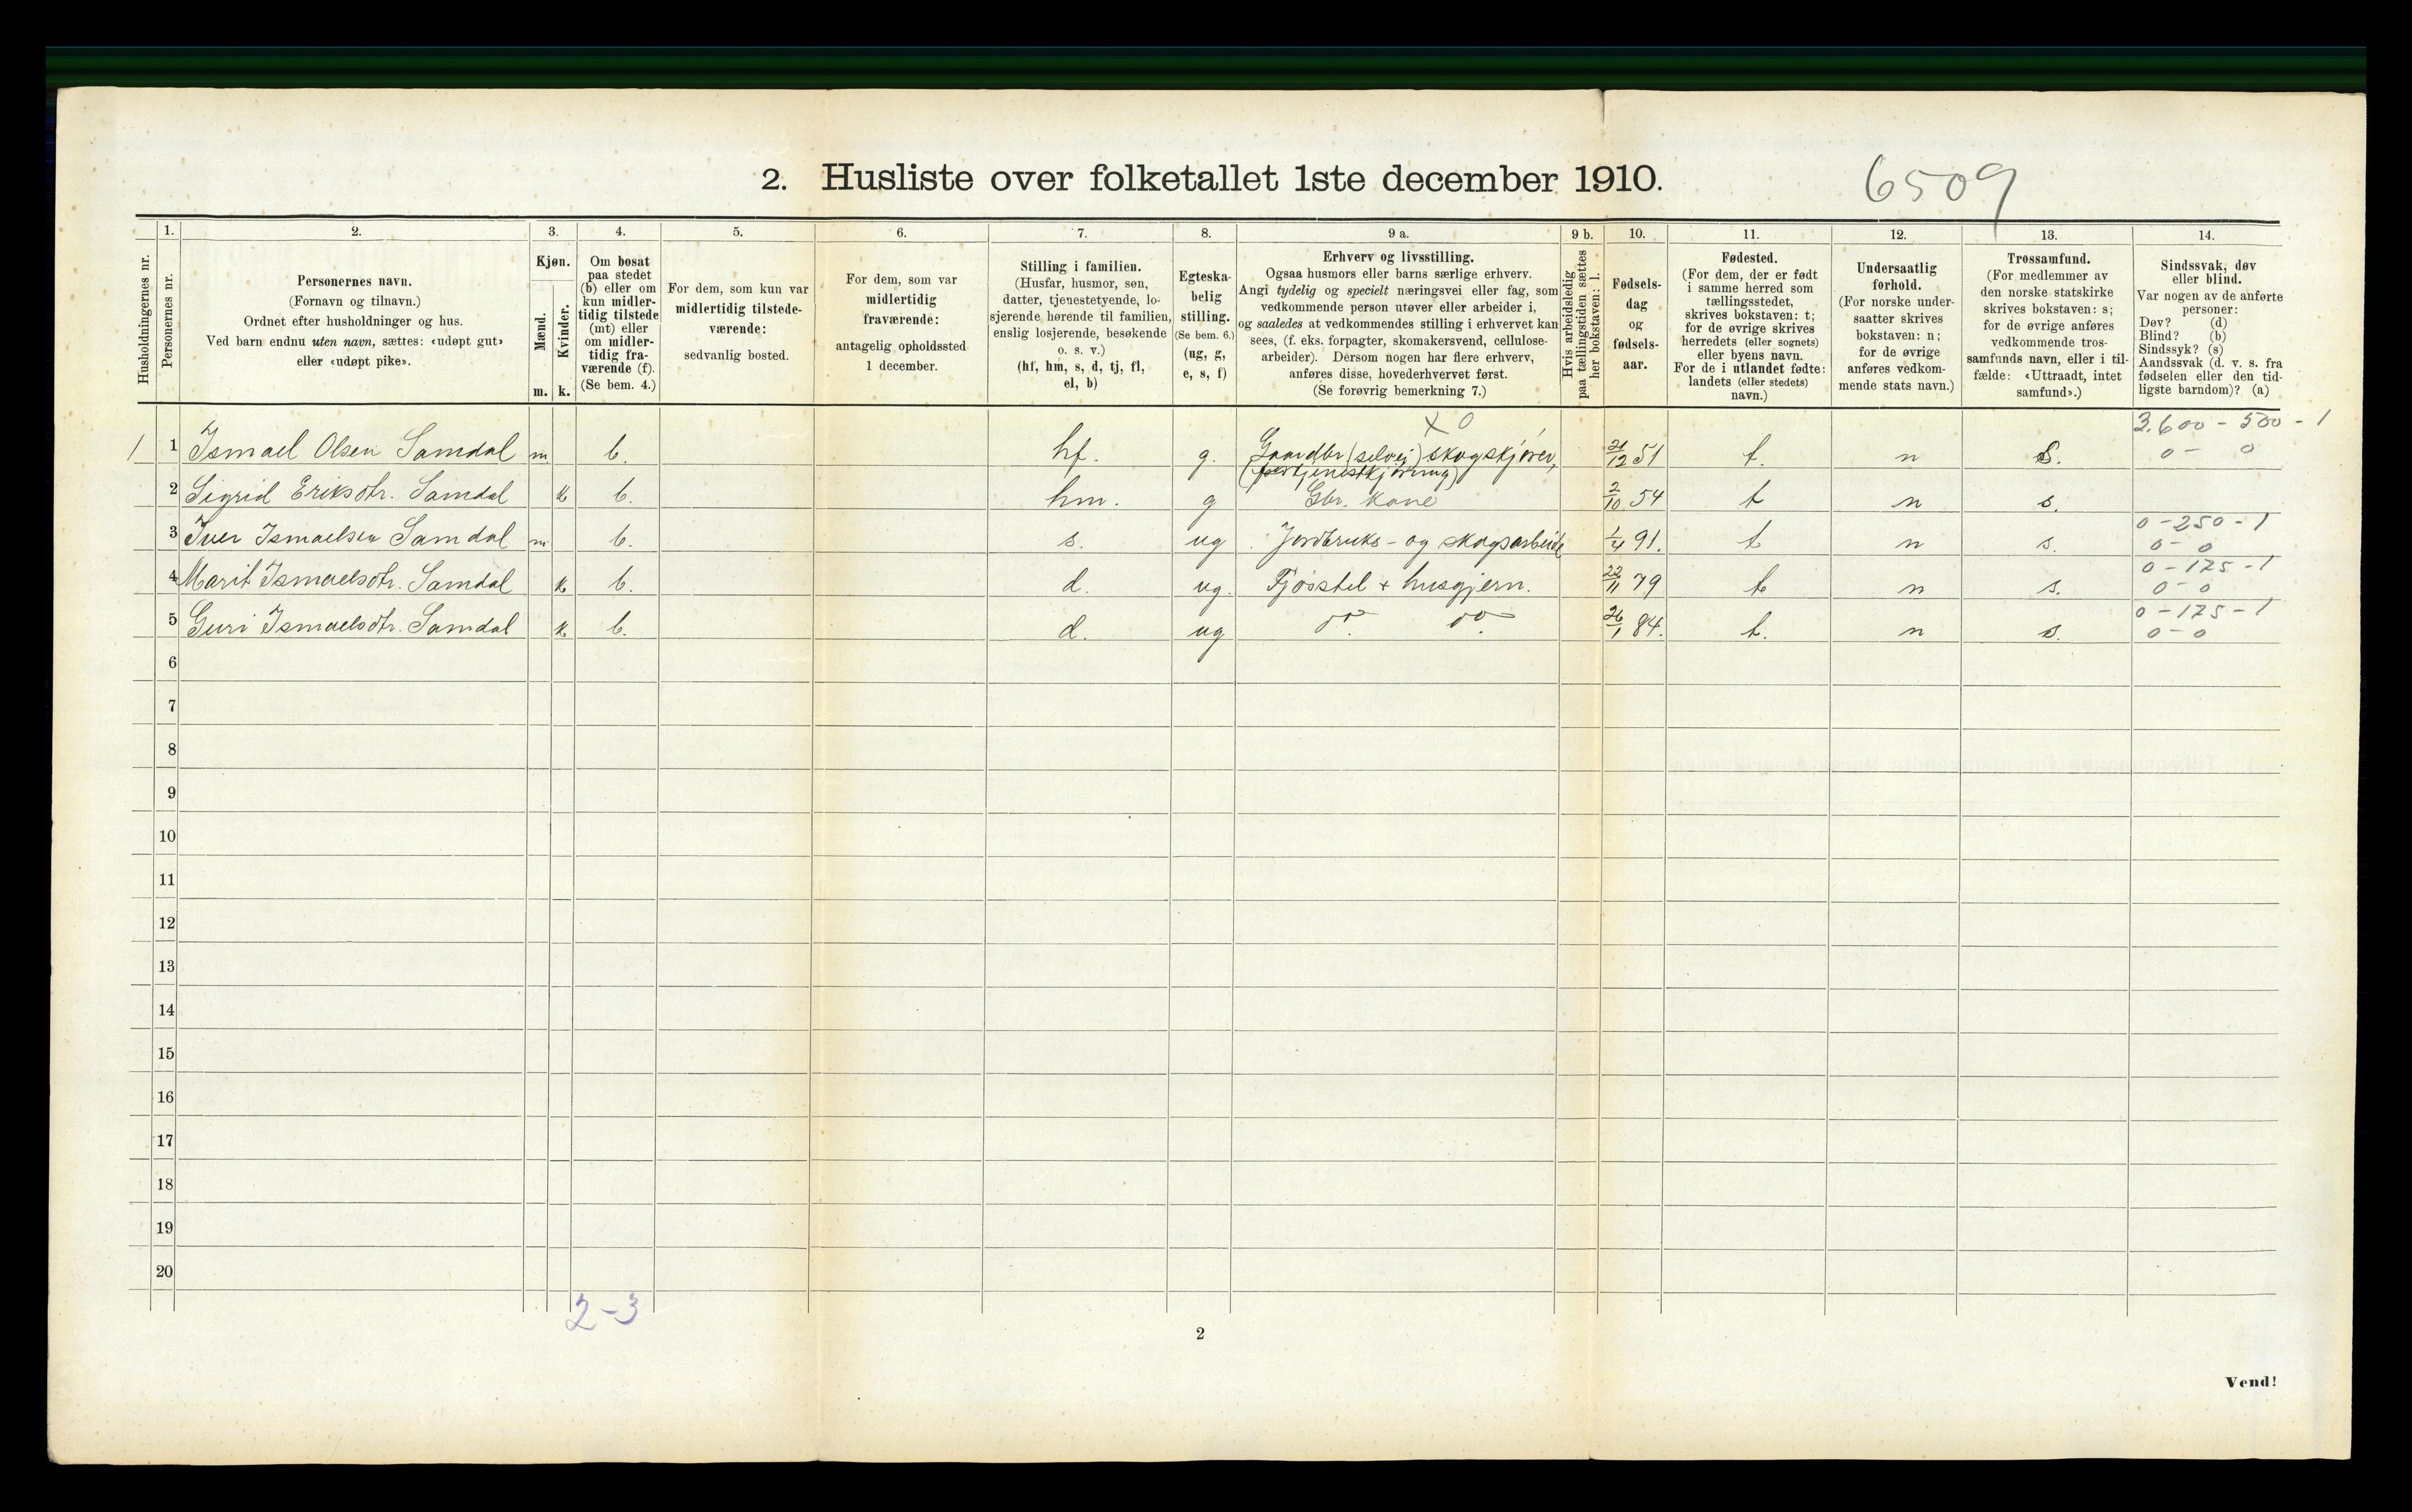 2. Husliste over folketallet 1ste december 1910.
6509
Husholdningernes nr.
1.
Personernes nr.
2.
Personernes navn.
(Fornavn og tilnavn.)
Ordnet efter husholdninger og hus.
Ved barn endnu uten navn, sættes: «udøpt gut»
eller «udøpt pike».
3.
Kjøn.
Mænd.
m.
Kvinder.
k.
4.
Om bosat
paa stedet
(b) eller om
kun midler-
tidig tilstede
(mt) eller
om midler-
tidig fra-
værende (f).
(Se bem. 4.)
5.
For dem, som kun var
midlertidig tilstede-
værende:
sedvanlig bosted.
6.
For dem, som var
midlertidig
fraværende:
antagelig opholdssted
1 december.
7.
Stilling i familien.
(Husfar, husmor, søn,
datter, tjenestetyende, lo-
sjerende hørende til familien,
enslig losjerende, besøkende
o. s. v.)
(hf, hm, s, d, tj, fl,
el, b)
8.
Egteska-
belig
stilling.
(Se bem. 6.)
(ug, g,
e, s, f)
9 a.
Erhverv og livsstilling.
Ogsaa husmors eller barns særlige erhverv.
Angi tydelig og specielt næringsvei eller fag, som
vedkommende person utøver eller arbeider i,
og saaledes at vedkommendes stilling i erhvervet kan
sees, (f. eks. forpagter, skomakersvend, cellulose-
arbeider). Dersom nogen har flere erhverv,
anføres disse, hovederhvervet først.
(Se forøvrig bemerkning 7.)
9 b.
Hvis arbeidsledig
paa tællingstiden sættes
her bokstaven: l.
10.
Fødsels-
dag
og
fødsels-
aar.
11.
Fødested.
(For dem, der er født
i samme herred som
tællingsstedet,
skrives bokstaven: t;
for de øvrige skrives
herredets (eller sognets)
eller byens navn.
For de i utlandet fødte:
landets (eller stedets)
navn.)
12.
Undersaatlig
forhold.
(For norske under-
saatter skrives
bokstaven: n;
for de øvrige
anføres vedkom-
mende stats navn.)
13.
Trossamfund.
(For medlemmer av
den norske statskirke
skrives bokstaven: s;
for de øvrige anføres
vedkommende tros-
samfunds navn, eller i til-
fælde: «Uttraadt, intet
samfund».)
14.
Sindssvak, døv
eller blind.
Var nogen av de anførte
personer:
Døv? (d)
Blind? (b)
Sindssyk? (s)
Aandssvak (d. v. s. fra
fødselen eller den tid-
ligste barndom)? (a)
x 0
3.600 - 500 - 1
1 1 Ismael Olsen Samdal m b. hf. g. Gaardbr (selvei) skogskjører, 21/12 51 t. n S. 0 - 0
2 Sigrid Eriksdtr. Samdal k b. hm. g Gbr. kone 2/10 54 t n s.
0 - 250 - 1
3 Iver Ismaelsen Samdal m b. s. ug Jordbruks- og skogsarbeide 1/4 91. t n s. 0 - 0
0 - 175 - 1
4 Marit Ismaelsdtr. Samdal k b. d. ug. Fjøsstel + husgjern. 22/11 79 t n s. 0 - 0
0 - 175 - 1
5 Guri Ismaelsdtr. Samdal k b. d. ug do. do. 26/1 84. t. n s. 0 - 0
6
7
8
9
10
11
12
13
14
15
16
17
18
19
20
2-3
2
Vend!